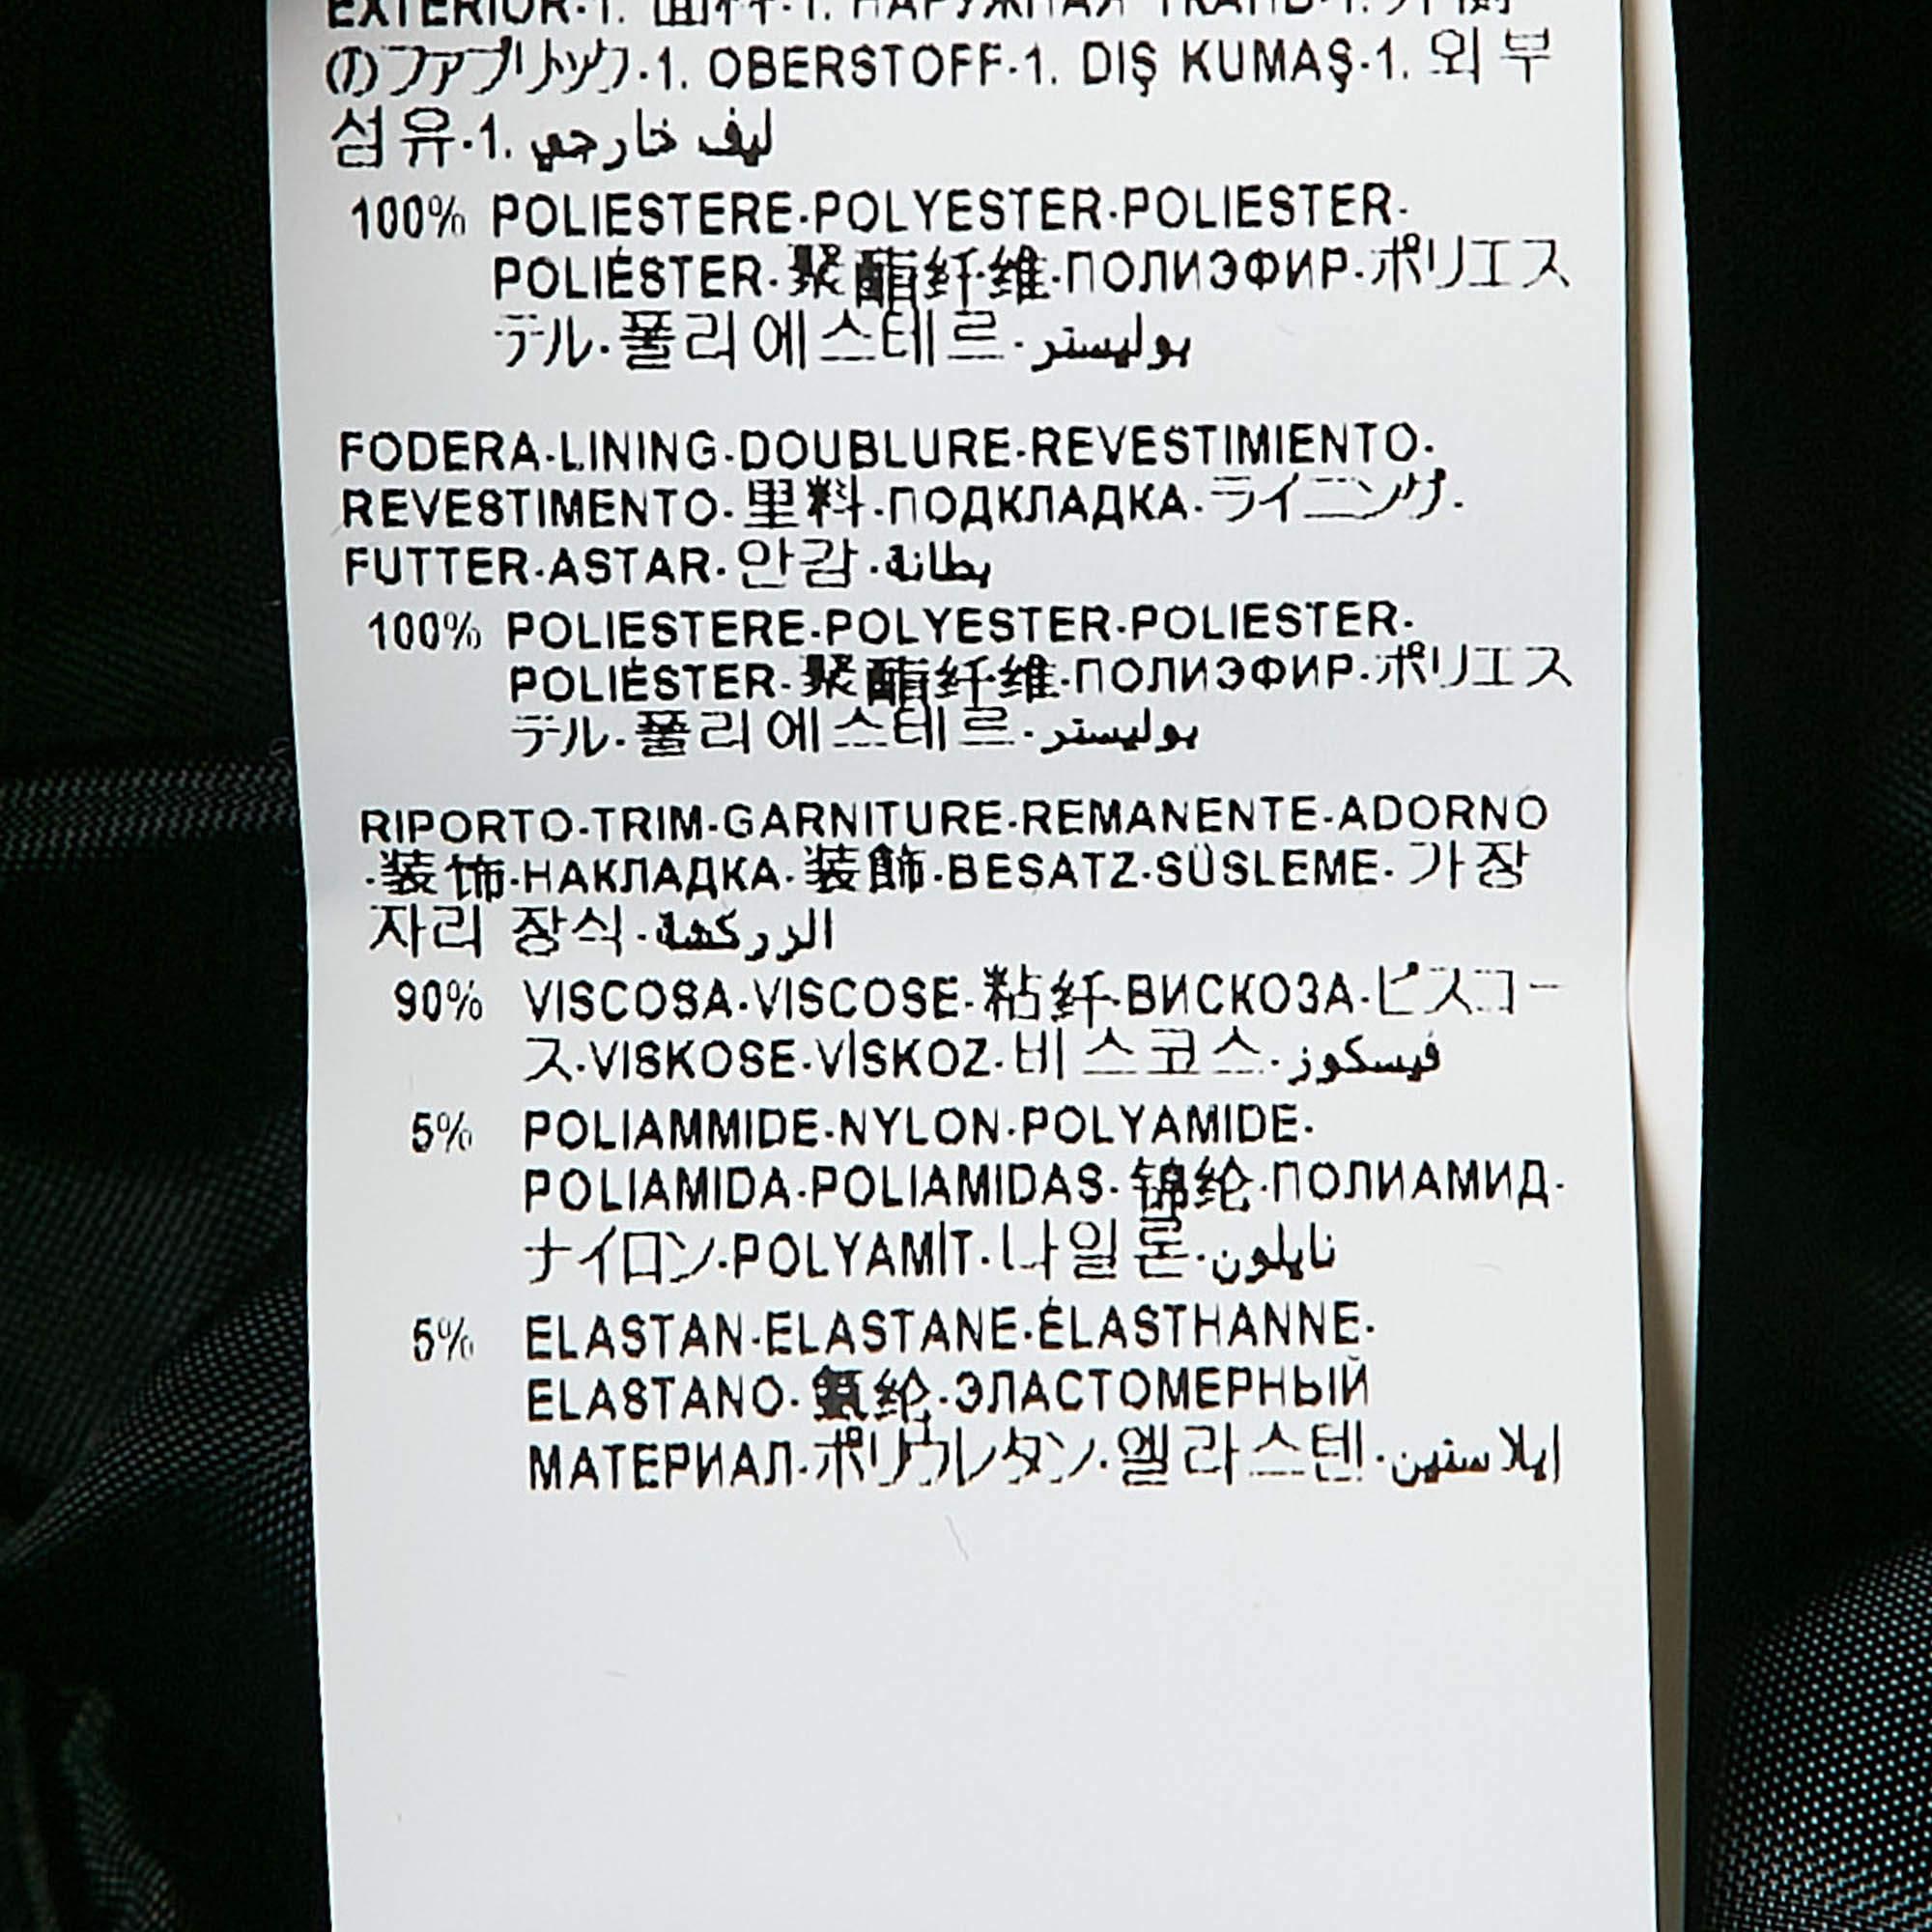 EXTERIOR·1. 面料·1. НАРУЖНАЯ ТКАНЬ·1. 外側
のファブリック·1. OBERSTOFF·1. DIŞ KUMAŞ·1. 외부
섬유·1. ليف خارجي
100% POLIESTERE·POLYESTER·POLIESTER·
POLIÉSTER·聚酯纤维·ПОЛИЭФИР·ポリエス
テル·폴리에스테르·بوليستر
FODERA·LINING·DOUBLURE·REVESTIMIENTO·
REVESTIMENTO·里料·ПОДКЛАДКА·ライニング·
FUTTER·ASTAR·안감·بطانة
100% POLIESTERE·POLYESTER·POLIESTER·
POLIÉSTER·聚酯纤维·ПОЛИЭФИР·ポリエス
テル·폴리에스테르·بوليستر
RIPORTO·TRIM·GARNITURE·REMANENTE·ADORNO
·装饰·НАКЛАДКА·装飾·BESATZ·SÜSLEME·가장
자리 장식·الزركشة
90% VISCOSA·VISCOSE·粘纤·ВИСКОЗА·ビスコー
ス·VISKOSE·VİSKOZ·비스코스·فيسكوز
5% POLIAMMIDE·NYLON·POLYAMIDE·
POLIAMIDA·POLIAMIDAS·锦纶·ПОЛИАМИД·
ナイロン·POLYAMİT·나일론·نايلون
5% ELASTAN·ELASTANE·ÉLASTHANNE·
ELASTANO·氨纶·ЭЛАСТОМЕРНЫЙ
МАТЕРИАЛ·ポリウレタン·엘라스텐·ايلاستين